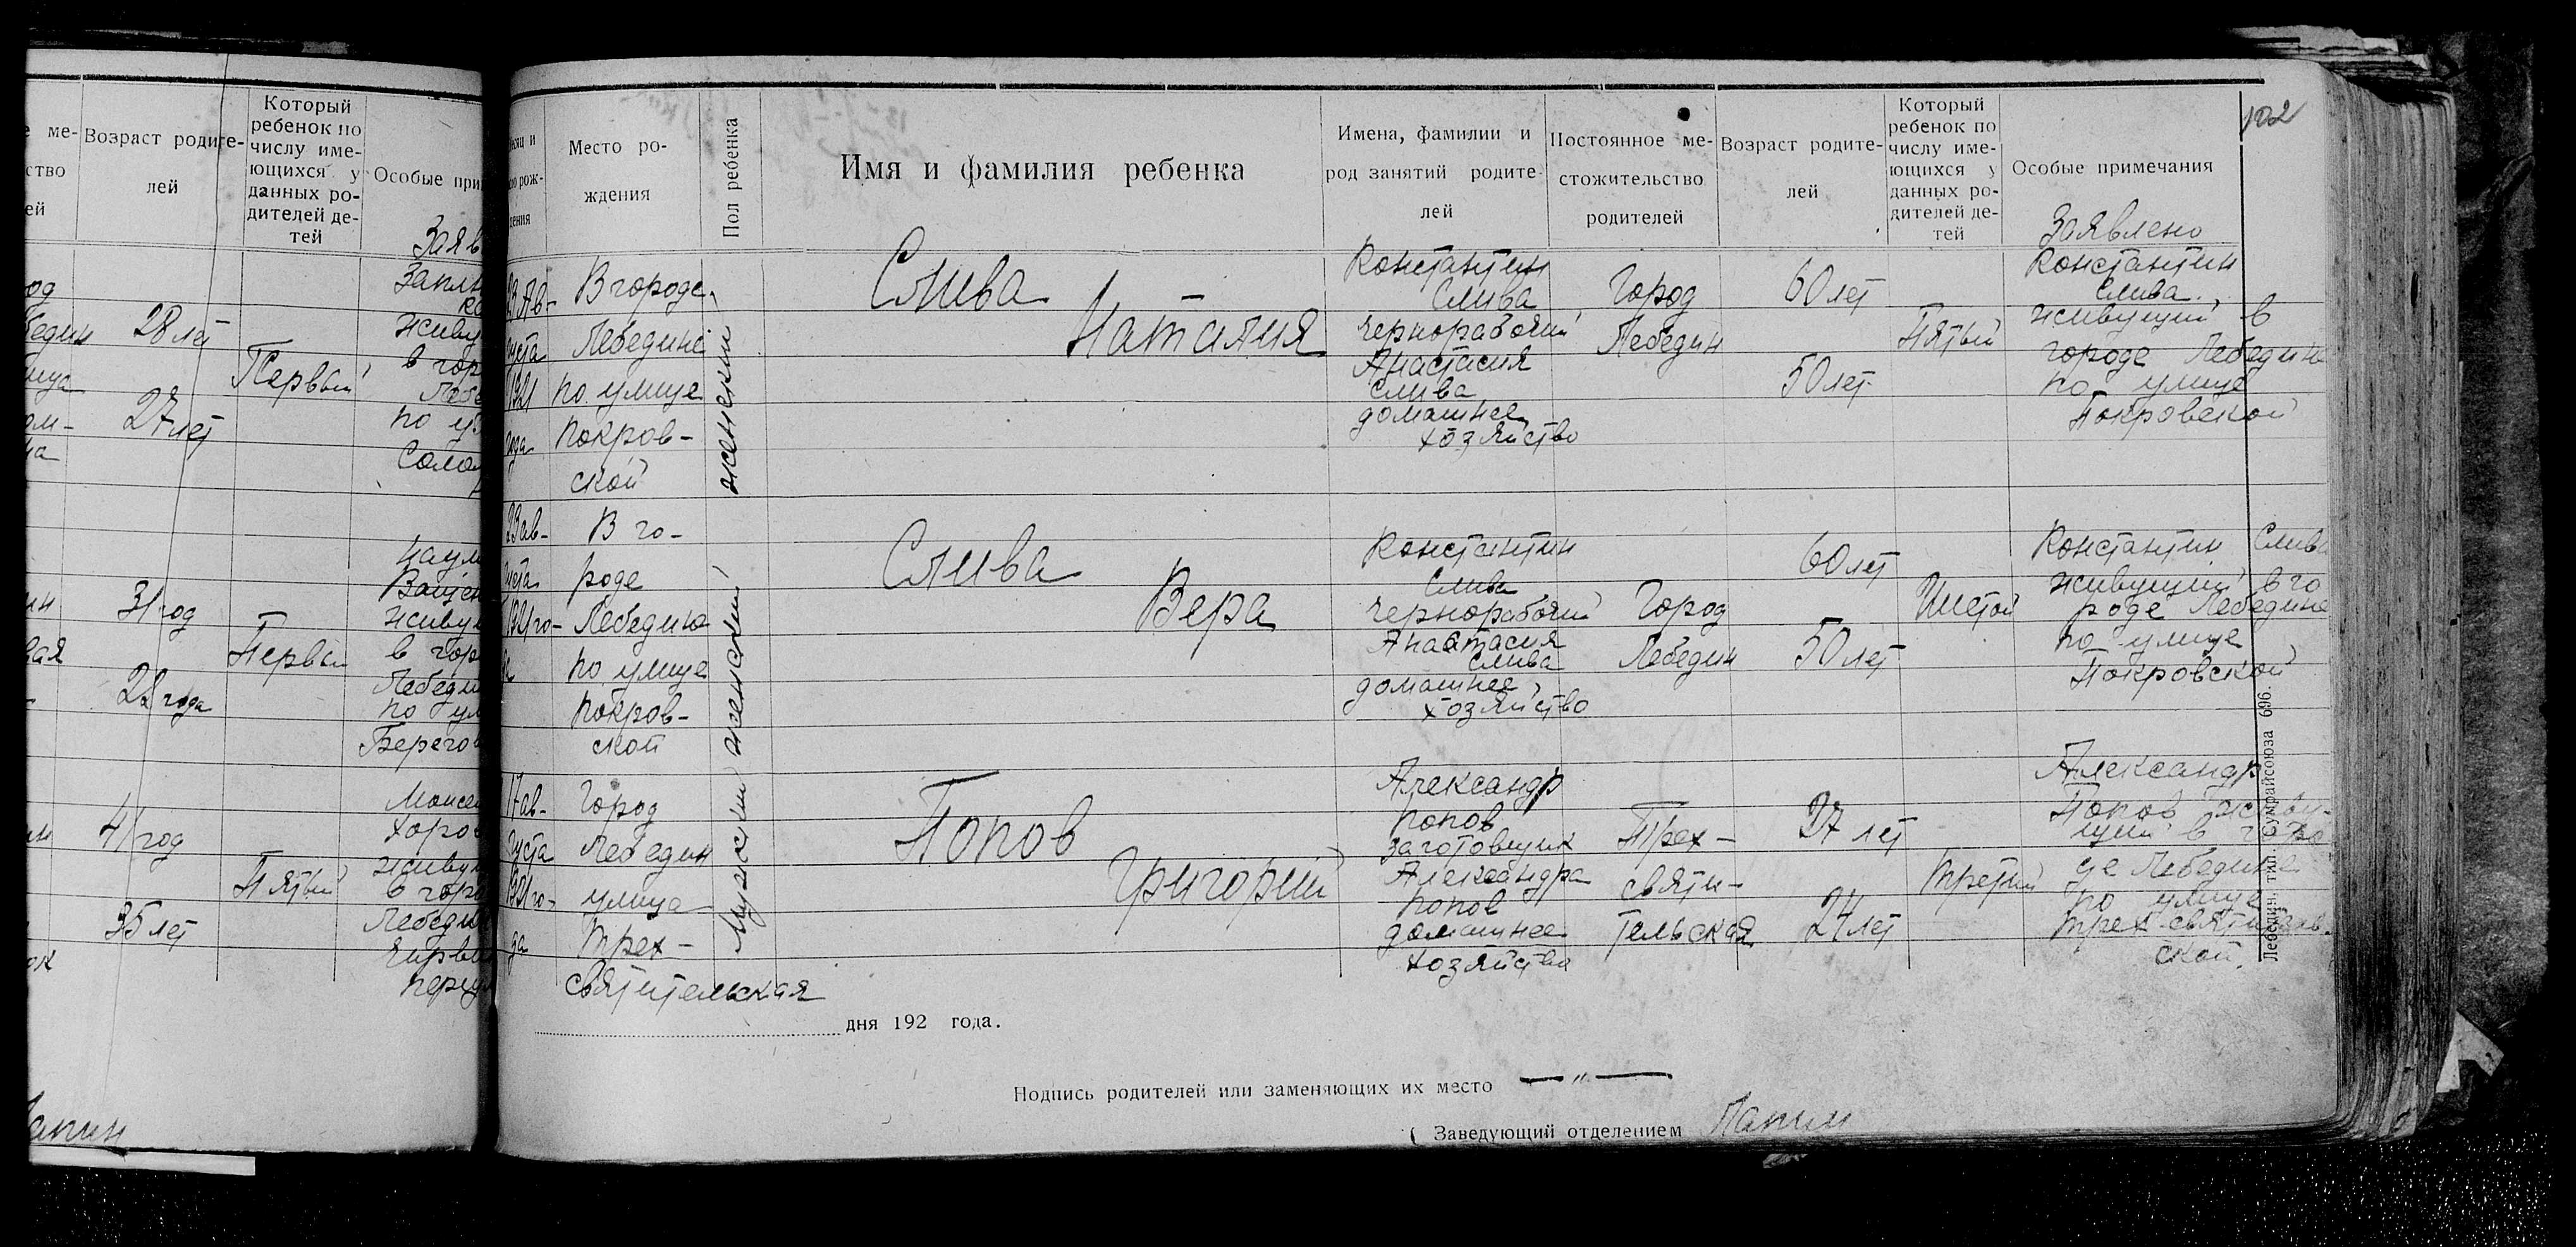 Возраст родите-
лей
Который
ребенок по
числу име-
ющихся у
данных ро-
дителей де-
тей
Особые при
Заяв
28 лет
27 лет
Первый
живу
в гор
Лебе
по ул
31 год
Первый
живу
в гор
Лебеди
по ул
Берего
41 год
35 лет
Пятый
живу
в горо
Лебеди
102
Место ро-
ждения
Пол ребенка
Имя и фамилия ребенка
Имена, фамилии и
род занятий родите-
лей
Постоянное ме-
стожительство
родителей
Возраст родите-
лей
Который
ребенок по
числу име-
ющихся у
данных ро-
дителей де-
тей
Особые примечания
Заявлено
23 Ав-
густа
1921
года
В городе
Лебедине
по улице
Покров-
ской
женский
Слива
Наталия
Константин
Слива
чернорабочий
Анастасия
Слива
домашнее
хозяйство
Город
Лебедин
60 лет
50 лет
Пятый
Константин
Слива
живущий в
городе Лебедине
по улице
Покровской
23 ав-
густа
1921 го-
В го-
роде
Лебедине
по улице
Покров-
ской
женский
Слива
Вера
Константин
Слива
чернорабочий
Анастасия
Слива
домашнее
хозяйство
Город
Лебедин
60 лет
50 лет
Шестой
Константин Слива
живущий в го
роде Лебедине
по улице
Покровской
17 ав-
густа
1921 го-
да
Город
Лебедин
улица
Трех-
святительская
Мужской
Попов
Григорий
Александр
Попов
заготовщик
Александра
Попов
домашнее
хозяйство
Трех-
святи-
тельская
27 лет
24 лет
Третий
Александр
Попов живу-
щий в горо
де Лебедине
по улице
ской.
дня 192 года.
Подпись родителей или заменяющих их место —„—
Заведующий отделением
Лебедин. тип. Сумрайсоюза 696.